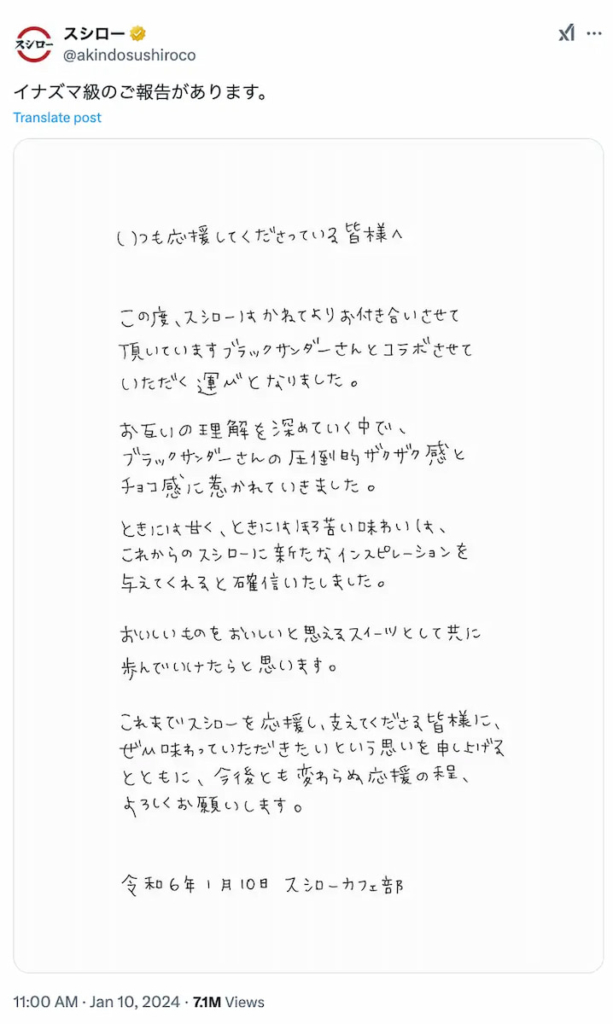 スシロー
スシロー
@akindosushiroco
イナズマ級のご報告があります。
Translate post
いつも応援してくださっている皆様へ
この度、スシローはかねてよりお付き合いさせて
頂いていますブラックサンダーさんとコラボさせて
いただく運びとなりました。
お互いの理解を深めていく中で、
ブラックサンダーさんの圧倒的ザクザク感と
チョコ感に惹かれていきました。
ときには甘く、ときにはほろ苦い味わいは、
これからのスシローに新たなインスピレーションを
与えてくれると確信いたしました。
おいしいものをおいしいと思えるスイーツとして共に
歩んでいけたらと思います。
これまでスシローを応援し、支えてくださる皆様に、
ぜひ味わっていただきたいという思いを申し上げる
とともに、今後とも変わらぬ応援の程、
よろしくお願いします。
令和6年1月10日 スシローカフェ部
11:00 AM · Jan 10, 2024 · 7.1M Views